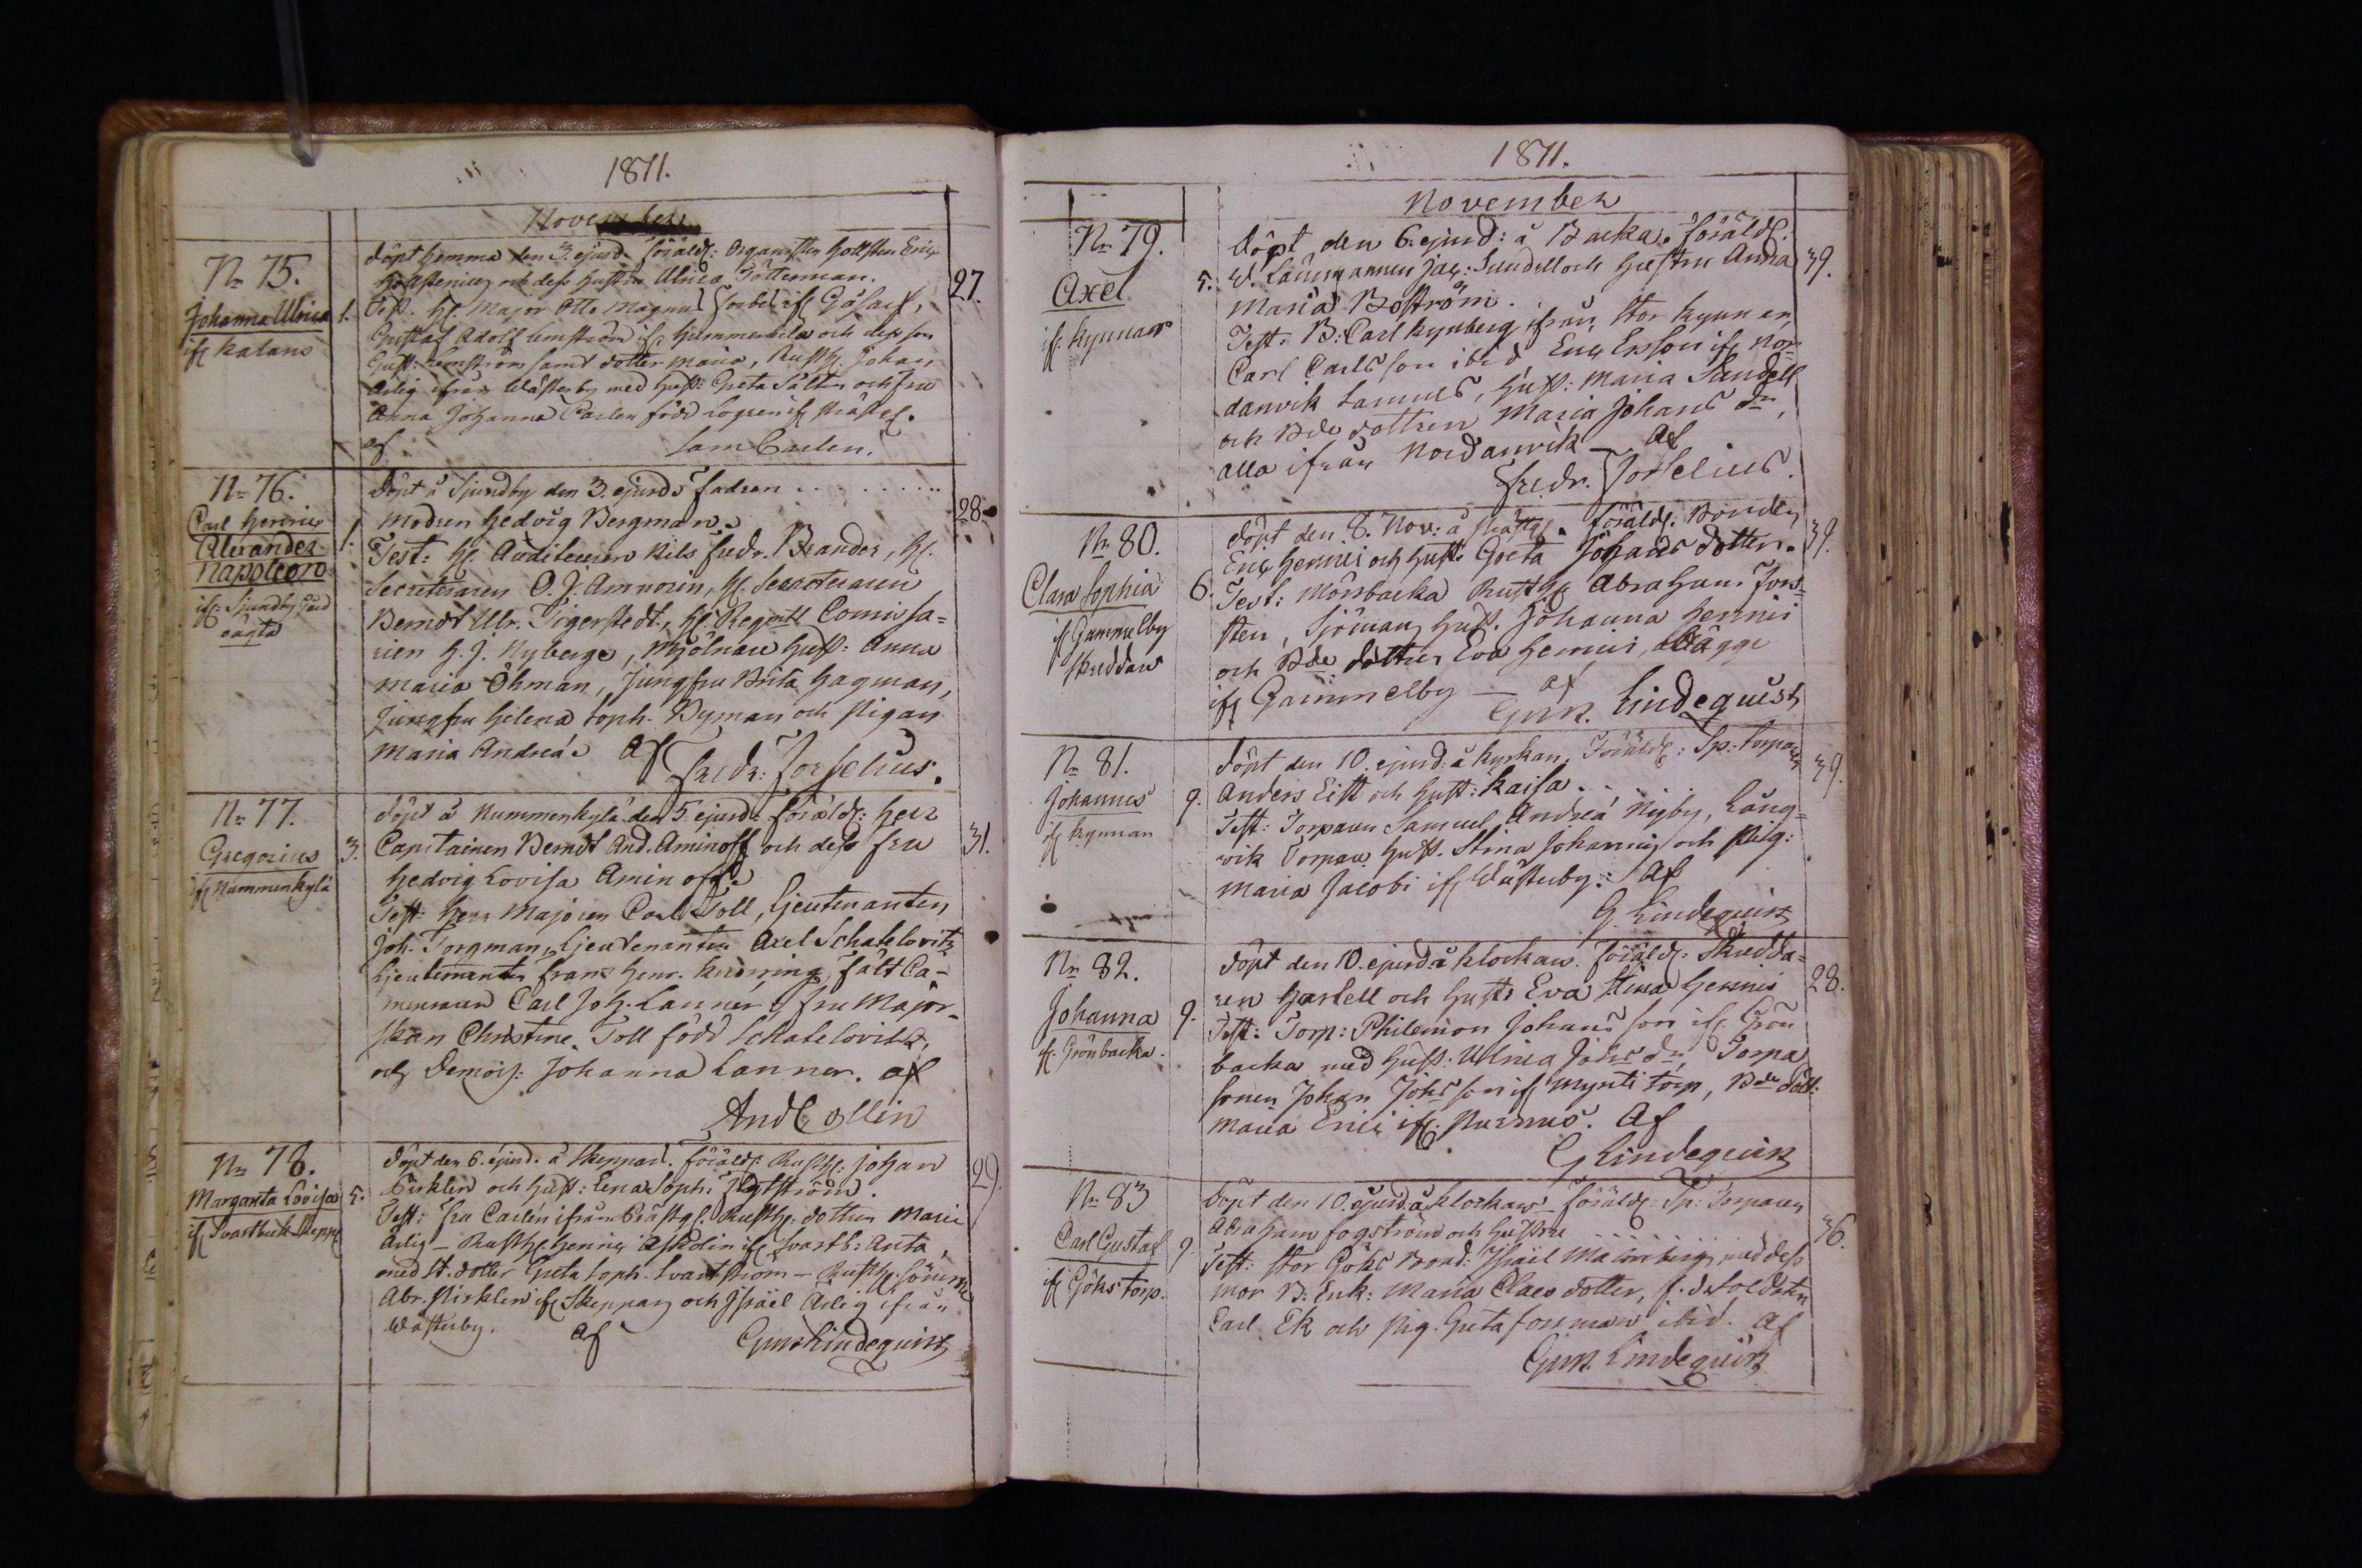 1811.
November
Nr 75.
Johanna Ulrica
if Kalans
1.
döpt hemma den 3. ejusd. föräldr: Organisten
och dess hustru Ulrica Tötterman.
Test. Hr. Major Otto Magnus
Gustaf Adolf Lemström ifr och dess son
Gust: Lemström samt dotter Maria, Rusth. Johan
Arlig ifrån Wästerby med Hust: Greta och fru
Anna Johanna Carlen född
af
27.
Nr 76.
Carl Henric
Alexander
Napoleon
ifr: Sjundby Gård
oägta
1.
döpt å Sjundby den 3. ejusd: fadren . . . . . . . .
modren Hedvig Bergman.
Test: Hr. Auditeuren Nils Fredr. Brander, Hr.
Secreteraren O. J. Amnorin, Hr. Secreteraren
Berndt Ulr. Tigerstedt, Hr. Regmtts Comissa=
rien H. J. Nyberg, Mjölnare Hust: Anna
Maria Öhman, Jungfru Brita Hagman,
Jungfru Helena Soph. Nyman och Pigan
Maria Andreæ af
Fredr: Forselius.
28.
Nr 77.
Gregorius
if Nummenkylä
3.
döpt å Nummenkylä den 5. ejusd: föräldr: Herr
Capitainen Berndt And. Aminoff och dess fru
Hedvig Lovisa Aminoff
Test: Herr Majoren Carl Toll, Lieutenanten
Joh. Torgman, Lieutenanten Axel Schatelovitz
Lieutenanten Frans Henr. fält Ca-
mereraren Carl Joh. Lanner, fru Major-
skan Christine Toll född Schatelovitz,
och Demois: Johanna Lanner. af
And Collin
31.
Nr 78.
Margareta Lovisa
if Svartbeck Skepp
5.
döpt den 6. ejusd. å Skeppars. föräldr Rusth: Johan
och Hust: Lena Soph:
Test: Fru Carlén ifrån Prästg. Rusth: dottren Maria
Arlig - Rusth: Henric Askolin if Svartb: Anta,
med St. dotter Greta Soph. Svartström - Rusth: sönerne
Abr. if Skeppars och Israël Arlig ifrån
Wästerby. af Gust Lindequist
29.
1811.
November
Nr 79.
Axel
if. Kynnar
5.
döpt den 6. ejusd: å Backa. föräldr.
Länsmannen Jac: Sundell och Hustru Anna
Maria Boström.
Test. B: Carl Kynberg ifrån Stor Kynnar,
Carl Carlsson ibid Eric Ersson if Nor=
danvik Samuels, Hust: Maria Sundell
och Bde dottren Maria Johans dr,
alla ifrån Nordanvik - Af
Fredr. Forselius.
39.
Nr 80.
Clara Sophia
if Gammelby
Skräddars
6.
döpt den 8. Nov. å Prästg. föräldr. Bonden
Eric Henrici och Hust. Greta Johans dotter.
Test: Mörsbacka Rusth Abraham Jons=
sten, Sjöman Hust. Johanna Hennis
och Bde dotter Eva Hennis, bägge
if Gammelby - af
Lindequist
39.
Nr 81.
Johannes
if Kynnar
9.
döpt den 10. ejusd: å kyrkan. Föräldr: Sp: torparen
Anders Eitt och Hust: Kaisa.
Test: Torparen Samuel Andreæ Nyby, Lång=
vik Torpar. Hust. Stina och Pig:
Maria Jacobi if Wästerby. Af
G. Lindequist
39.
Nr 82.
Johanna
if. Grönbacka.
9.
döpt den 10. ejusd å Klockars. föräldr: Skrädda=
ren Hartell och Hust: Eva Stina Hennis
Test: Torp: Philemon Johans son if Grön
backa med Hust: Ulrica Johs dr, Torpa
sonen Johan Johs son if Mynti torp, Bde dott:
Maria Erici if. Purnus. Af
G Lindequist
28.
Nr 83
Carl Gustaf
if Göks torp.
9
döpt den 10. ejusd å Klockars - föräldr: Sp: Torparen
Abraham Fogström och Hustru
Test: Stor Göks Bond: Israël med dess
mor B. Enk: Maria Claes dotter, f. d. Soldaten
Carl Ek och Pig. Greta Forsman ibid. Af
Lindequist
36.